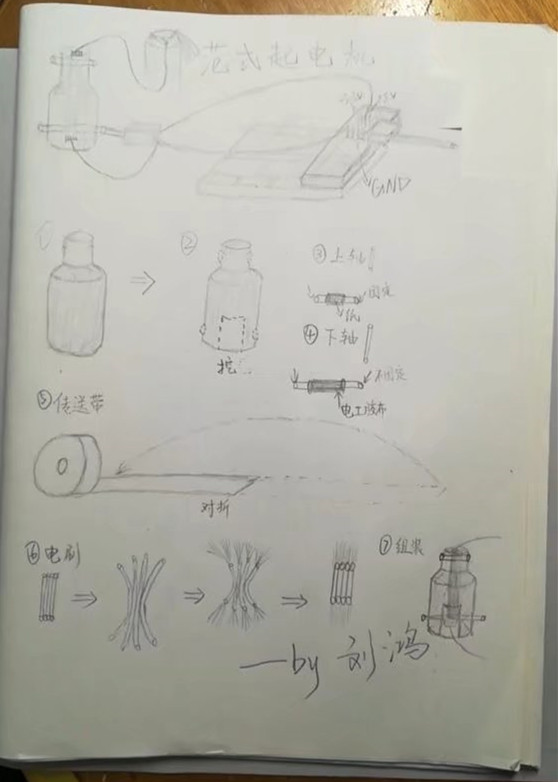 范式起电机
GND
①
②
挖
③上轴
固定
④下轴
不固定
电工胶布
⑤传送带
对折
⑥电刷
⑦组装
——by 刘鸿